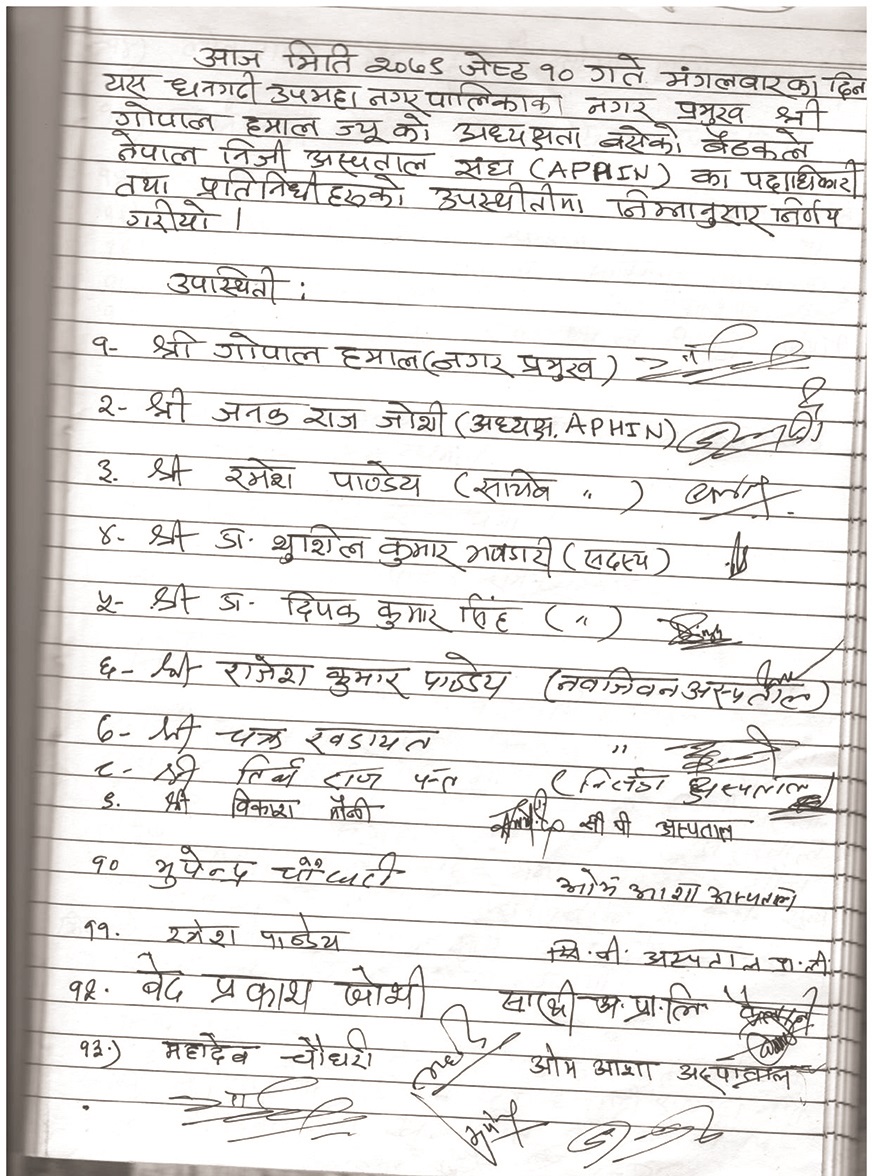 आज मिति २०७९ जेष्ठ १० गते मंगलबारका दिन
यस धनगढी उपमहानगरपालिकाका नगर प्रमुख श्री
गोपाल हमाल ज्यू को अध्यक्षता बसेको बैठकले
नेपाल निजी अस्पताल संघ (APHIN) का पदाधिकारी
तथा प्रतिनिधीहरुको उपस्थीतीमा निम्नानुसार निर्णय
गरीयो ।
उपास्थिती :
१- श्री गोपाल हमाल (नगर प्रमुख)
२- श्री जनक राज जोशी (अध्यक्ष, APHIN)
३. श्री रमेश पाण्डेय (सचिव " )
४- श्री डा. शुशिल कुमार भण्डारी (सदस्य)
५- श्री डा. दिपक कुमार सिंह ( " )
६- श्री राजेश कुमार पाण्डेय (नवजिवन अस्पताल)
७- श्री चक्र खडायत "
८- श्री तिर्थ राज पन्त ( अस्पताल
९. श्री विकाश सी पी अस्पताल
१० भुपेन्द्र चौधरी ओम आशा अस्पताल
११. रमेश पाण्डेय सि. पी. अस्पताल प्रा. ली.
१२. वेद प्रकाश जोशी साथी अ. प्रा. लि कैलाली
१३.) महादेव चौधरी ओम आशा अस्पाताल